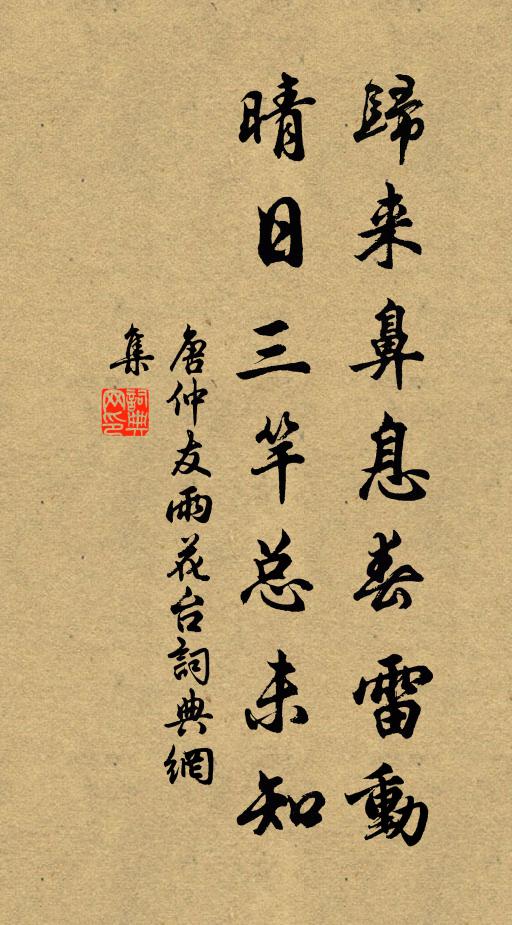 歸来鼻息春雷動
晴日三竿总未知
唐仲友雨花台詞典網
集
詞典
网印